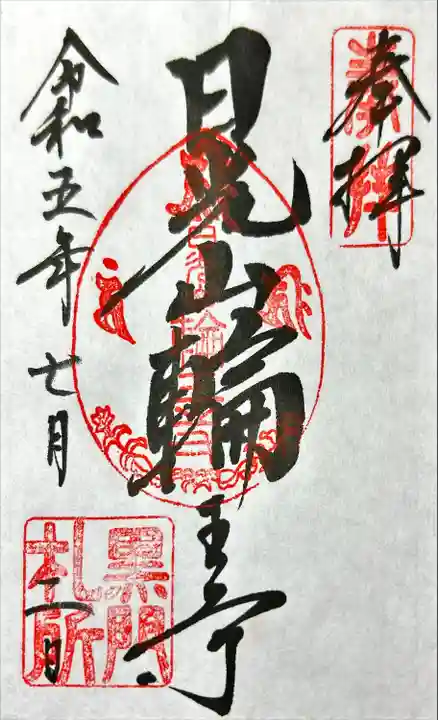 奉拝
日光山輪王寺
令和五年七月二日
黒門
札所